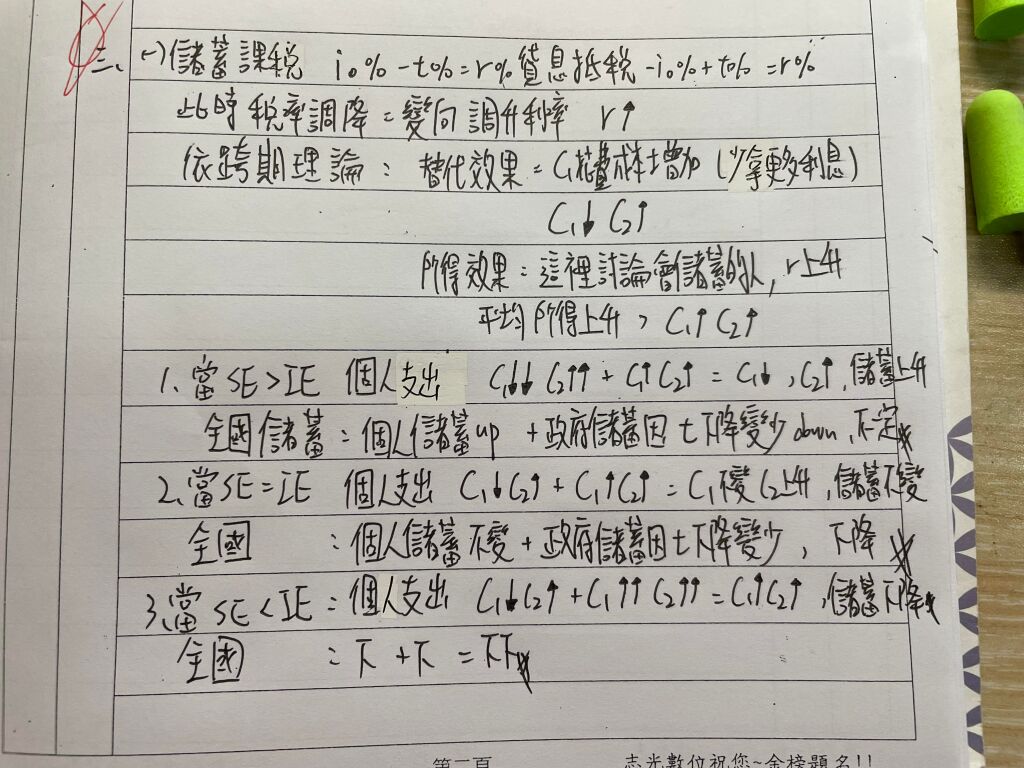 三、(一)儲蓄課稅 i0% - t0% = r% 貸息抵稅 -i0% + t0% = r%
此時稅率調降 = 變向調升利率 r↑
依跨期理論: 替代效果 = C1花費成本增加 (少拿更多利息)
C1↓ C2↑
所得效果: 這裡討論會儲蓄的人, r上升
平均所得上升, C1↑ C2↑
1. 當SE>IE 個人支出 C1↓↓ C2↑↑ + C1↑ C2↑ = C1↓, C2↑, 儲蓄上升
全國儲蓄: 個人儲蓄up + 政府儲蓄因t下降變少down, 不定
2. 當SE=IE 個人支出 C1↓ C2↑ + C1↑ C2↑ = C1不變 C2上升, 儲蓄不變
全國 : 個人儲蓄不變 + 政府儲蓄因t下降變少, 下降
3. 當SE<IE = 個人支出 C1↓ C2↑ + C1↑↑ C2↑↑ = C1↑ C2↑, 儲蓄下降
全國 : 下 + 下 = 下下
第二頁 志光數位祝您~金榜題名!!